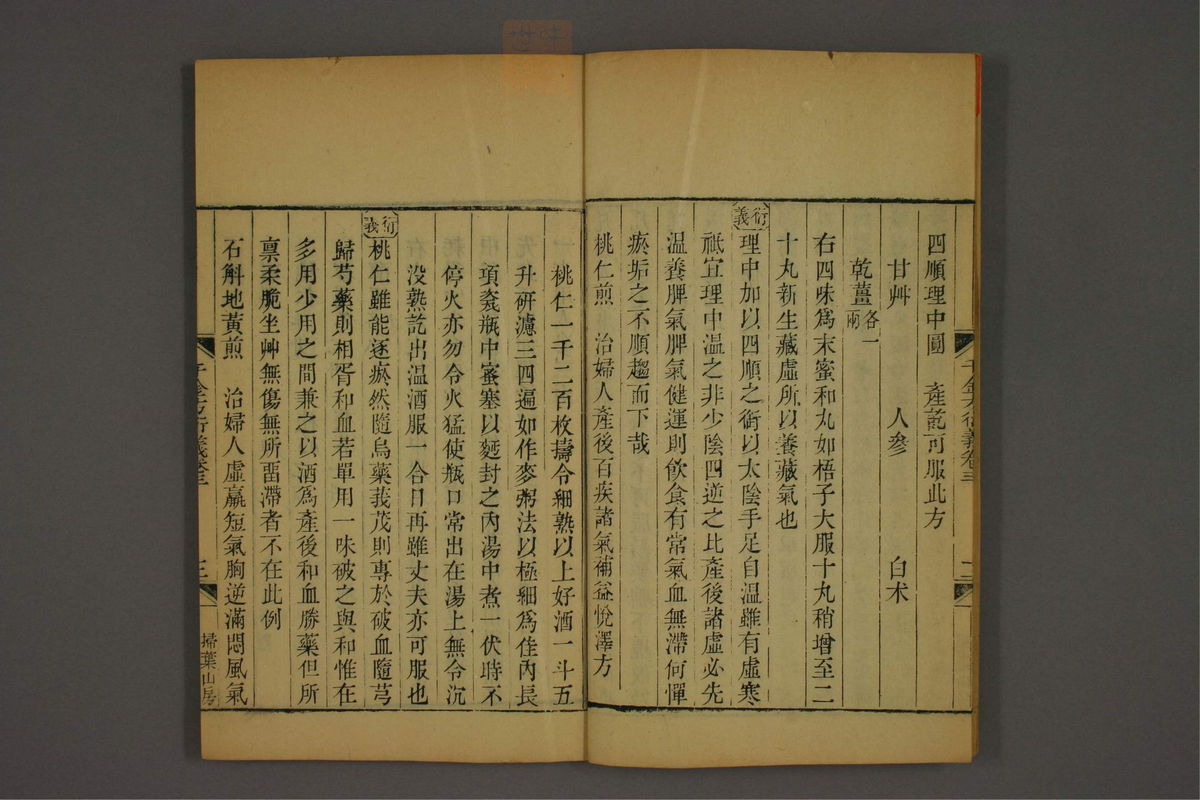 四順理中圓　產訖可服此方
甘艸　人參　白术
乾薑各一兩
右四味爲末蜜和丸如梧子大服十丸稍增至二
十丸新生藏虛所以養藏氣也
衍義
理中加以四順之銜以太陰手足自温雖有虛寒
祗宜理中温之非少陰四逆之比產後諸虛必先
温養脾氣脾氣健運則飲食有常氣血無滯何憚
瘀垢之不順趨而下哉
桃仁煎　治婦人產後百疾諸氣補益悅澤方
千金方衍義卷三
二
桃仁一千二百枚擣令細熟以上好酒一斗五
升研濾三四遍如作麥粥法以極細爲佳內長
項瓷瓶中蜜塞以麪封之內湯中煮一伏時不
停火亦勿令火猛使瓶口常出在湯上無令沉
没熟訖出温酒服一合日再雖丈夫亦可服也
衍義
桃仁雖能逐瘀然隨烏藥莪茂則專於破血隨芎
歸芍藥則相胥和血若單用一味破之與和惟在
多用少用之間兼之以酒爲產後和血勝藥但所
禀柔脆坐艸無傷無所畱滯者不在此例
石斛地黃煎　治婦人虛羸短氣胸逆滿悶風氣
千金方衍義卷三
三
掃葉山房